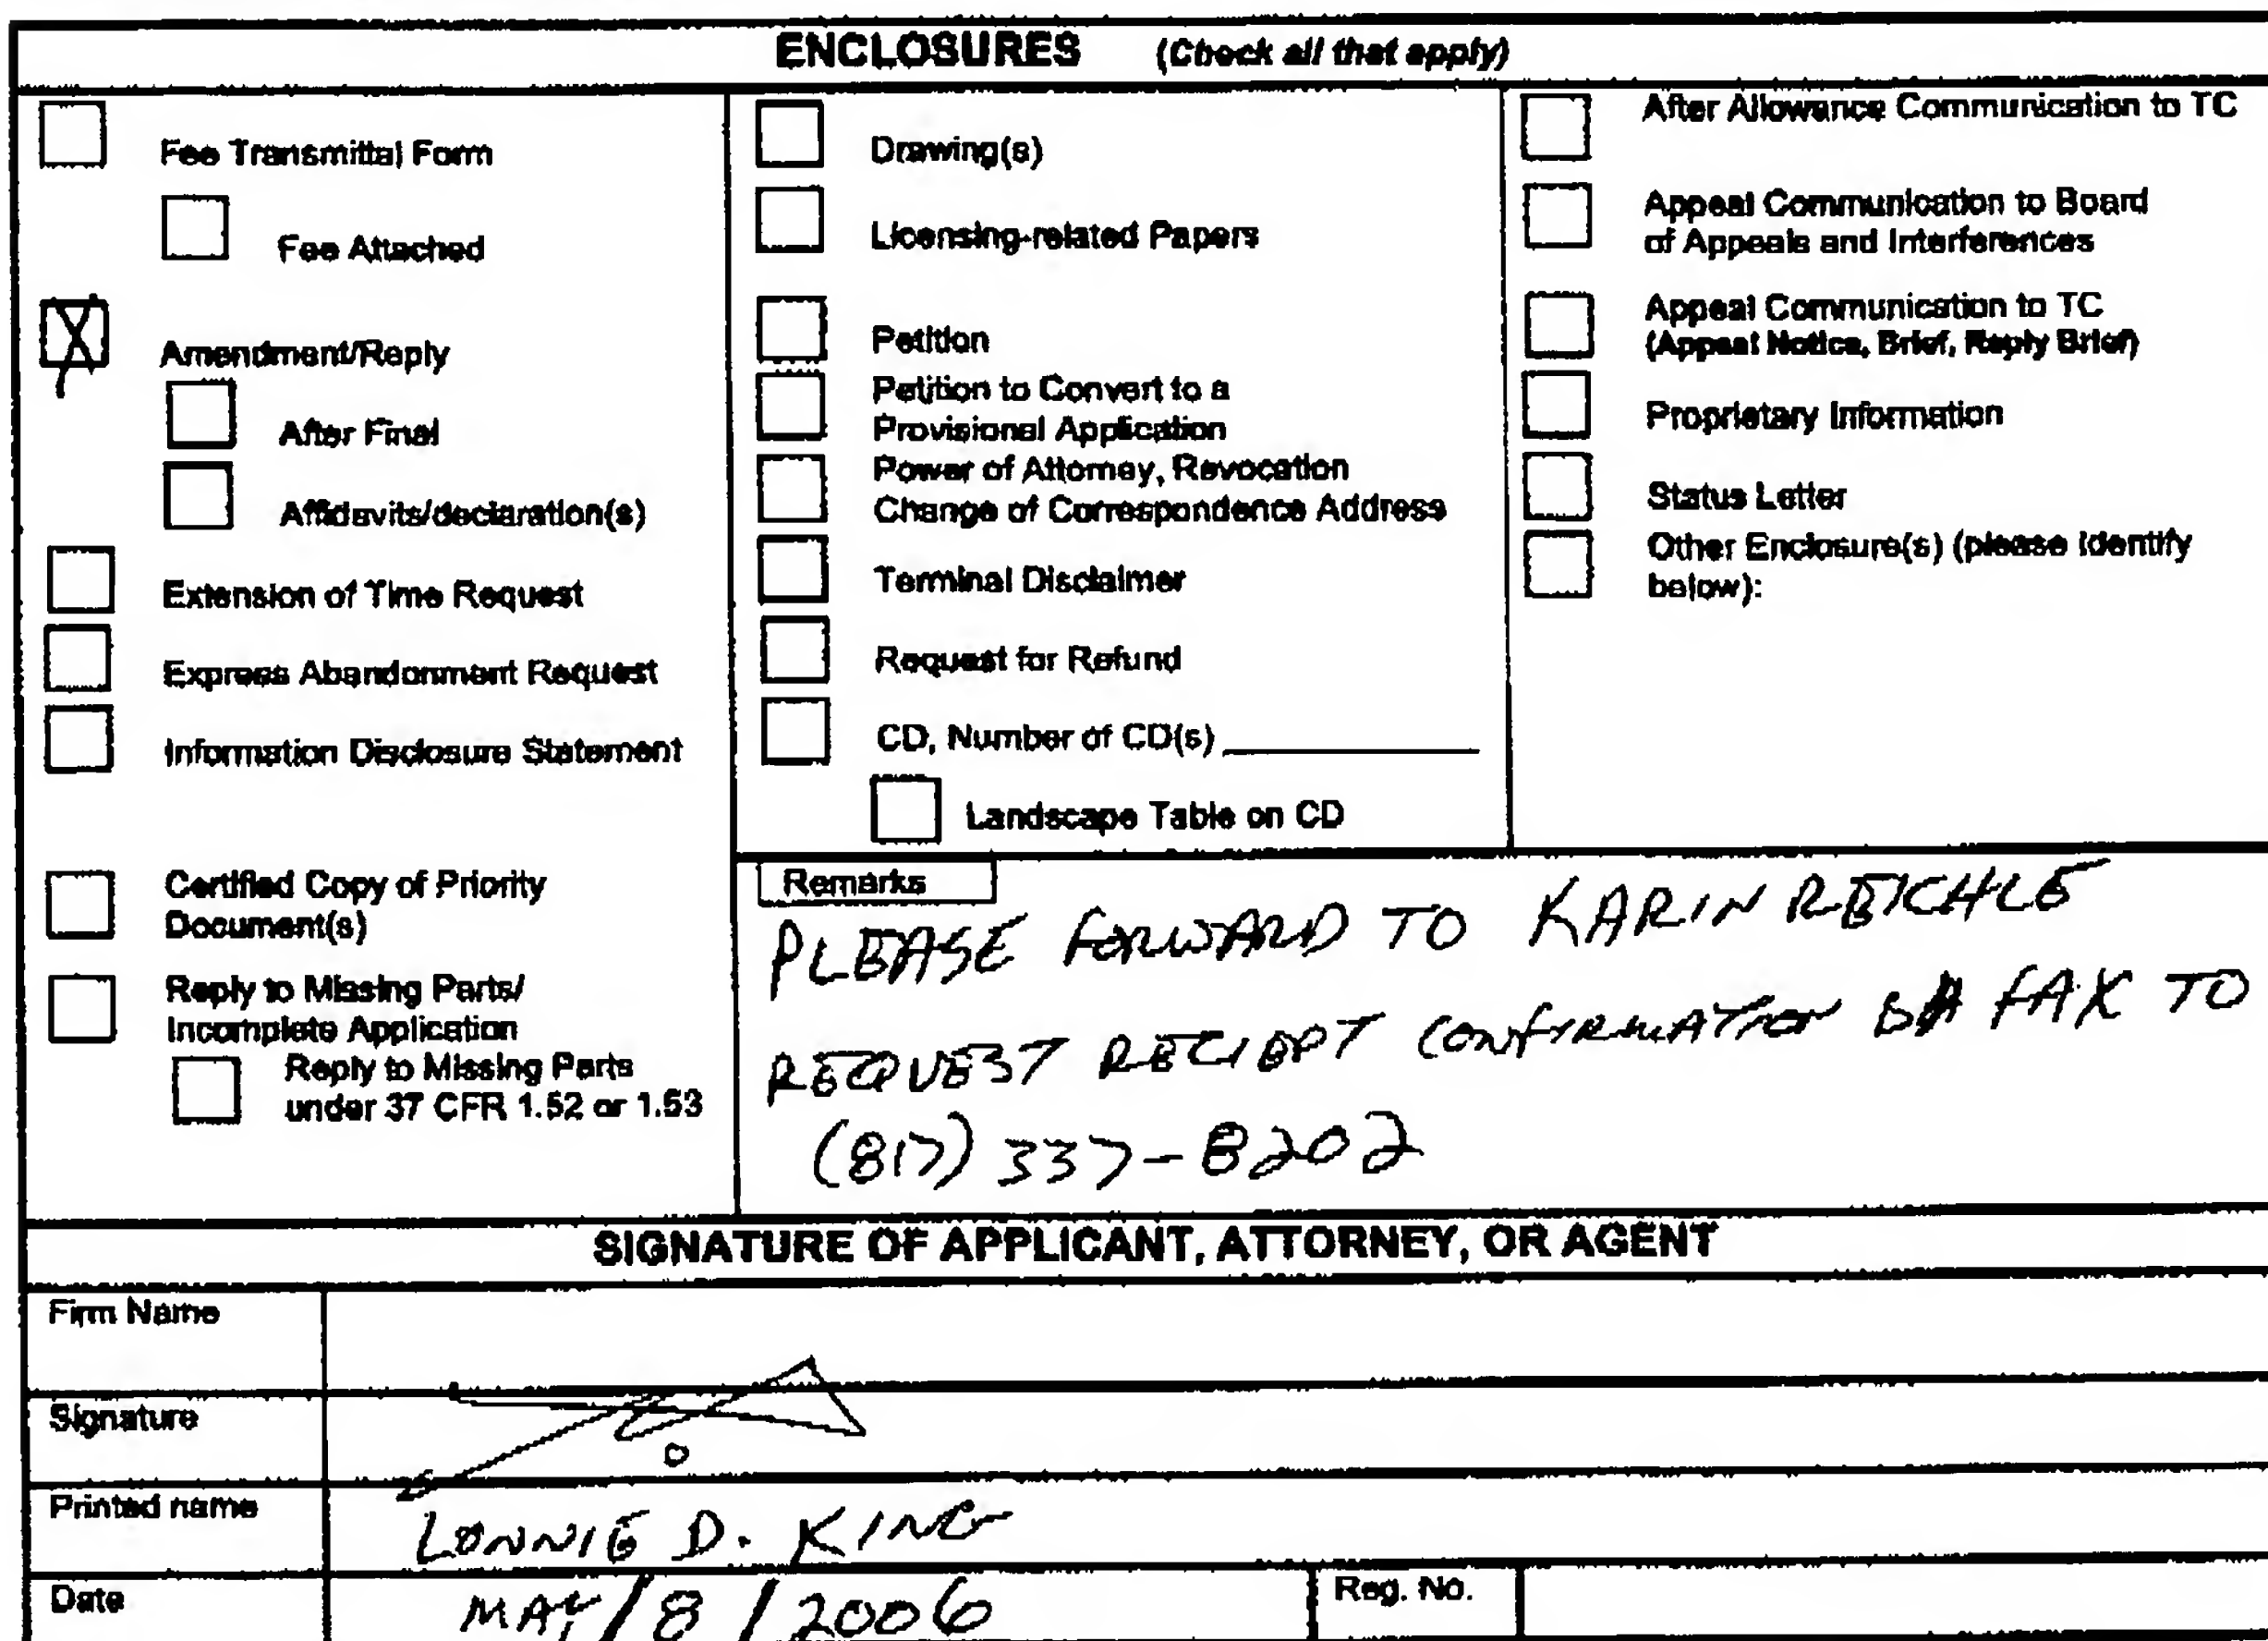 ENCLOSURES (Check all that apply)
Fee Transmittal Form
Fee Attached
Amendment/Reply
After Final
Affidavits/declaration(s)
Extension of Time Request
Express Abandonment Request
Information Disclosure Statement
Certified Copy of Priority
Document(s)
Reply to Missing Parts/
Incomplete Application
Reply to Missing Parts
under 37 CFR 1.52 or 1.53
Drawing(s)
Licensing-related Papers
Petition
Petition to Convert to a
Provisional Application
Power of Attorney, Revocation
Change of Correspondence Address
Terminal Disclaimer
Request for Refund
CD, Number of CD(s)
Landscape Table on CD
After Allowance Communication to TC
Appeal Communication to Board
of Appeals and Interferences
Appeal Communication to TC
(Appeal Notice, Brief, Reply Brief)
Proprietary Information
Status Letter
Other Enclosure(s) (please Identify
below):
Remarks
PLEASE FORWARD TO KARIN REICHLE
REQUEST RECIEPT CONFIRMATION FAX TO
(817) 337-8202
SIGNATURE OF APPLICANT, ATTORNEY, OR AGENT
Firm Name
Signature
Printed name LONNIE D. KING
Date MAY/8/2006 Reg. No.